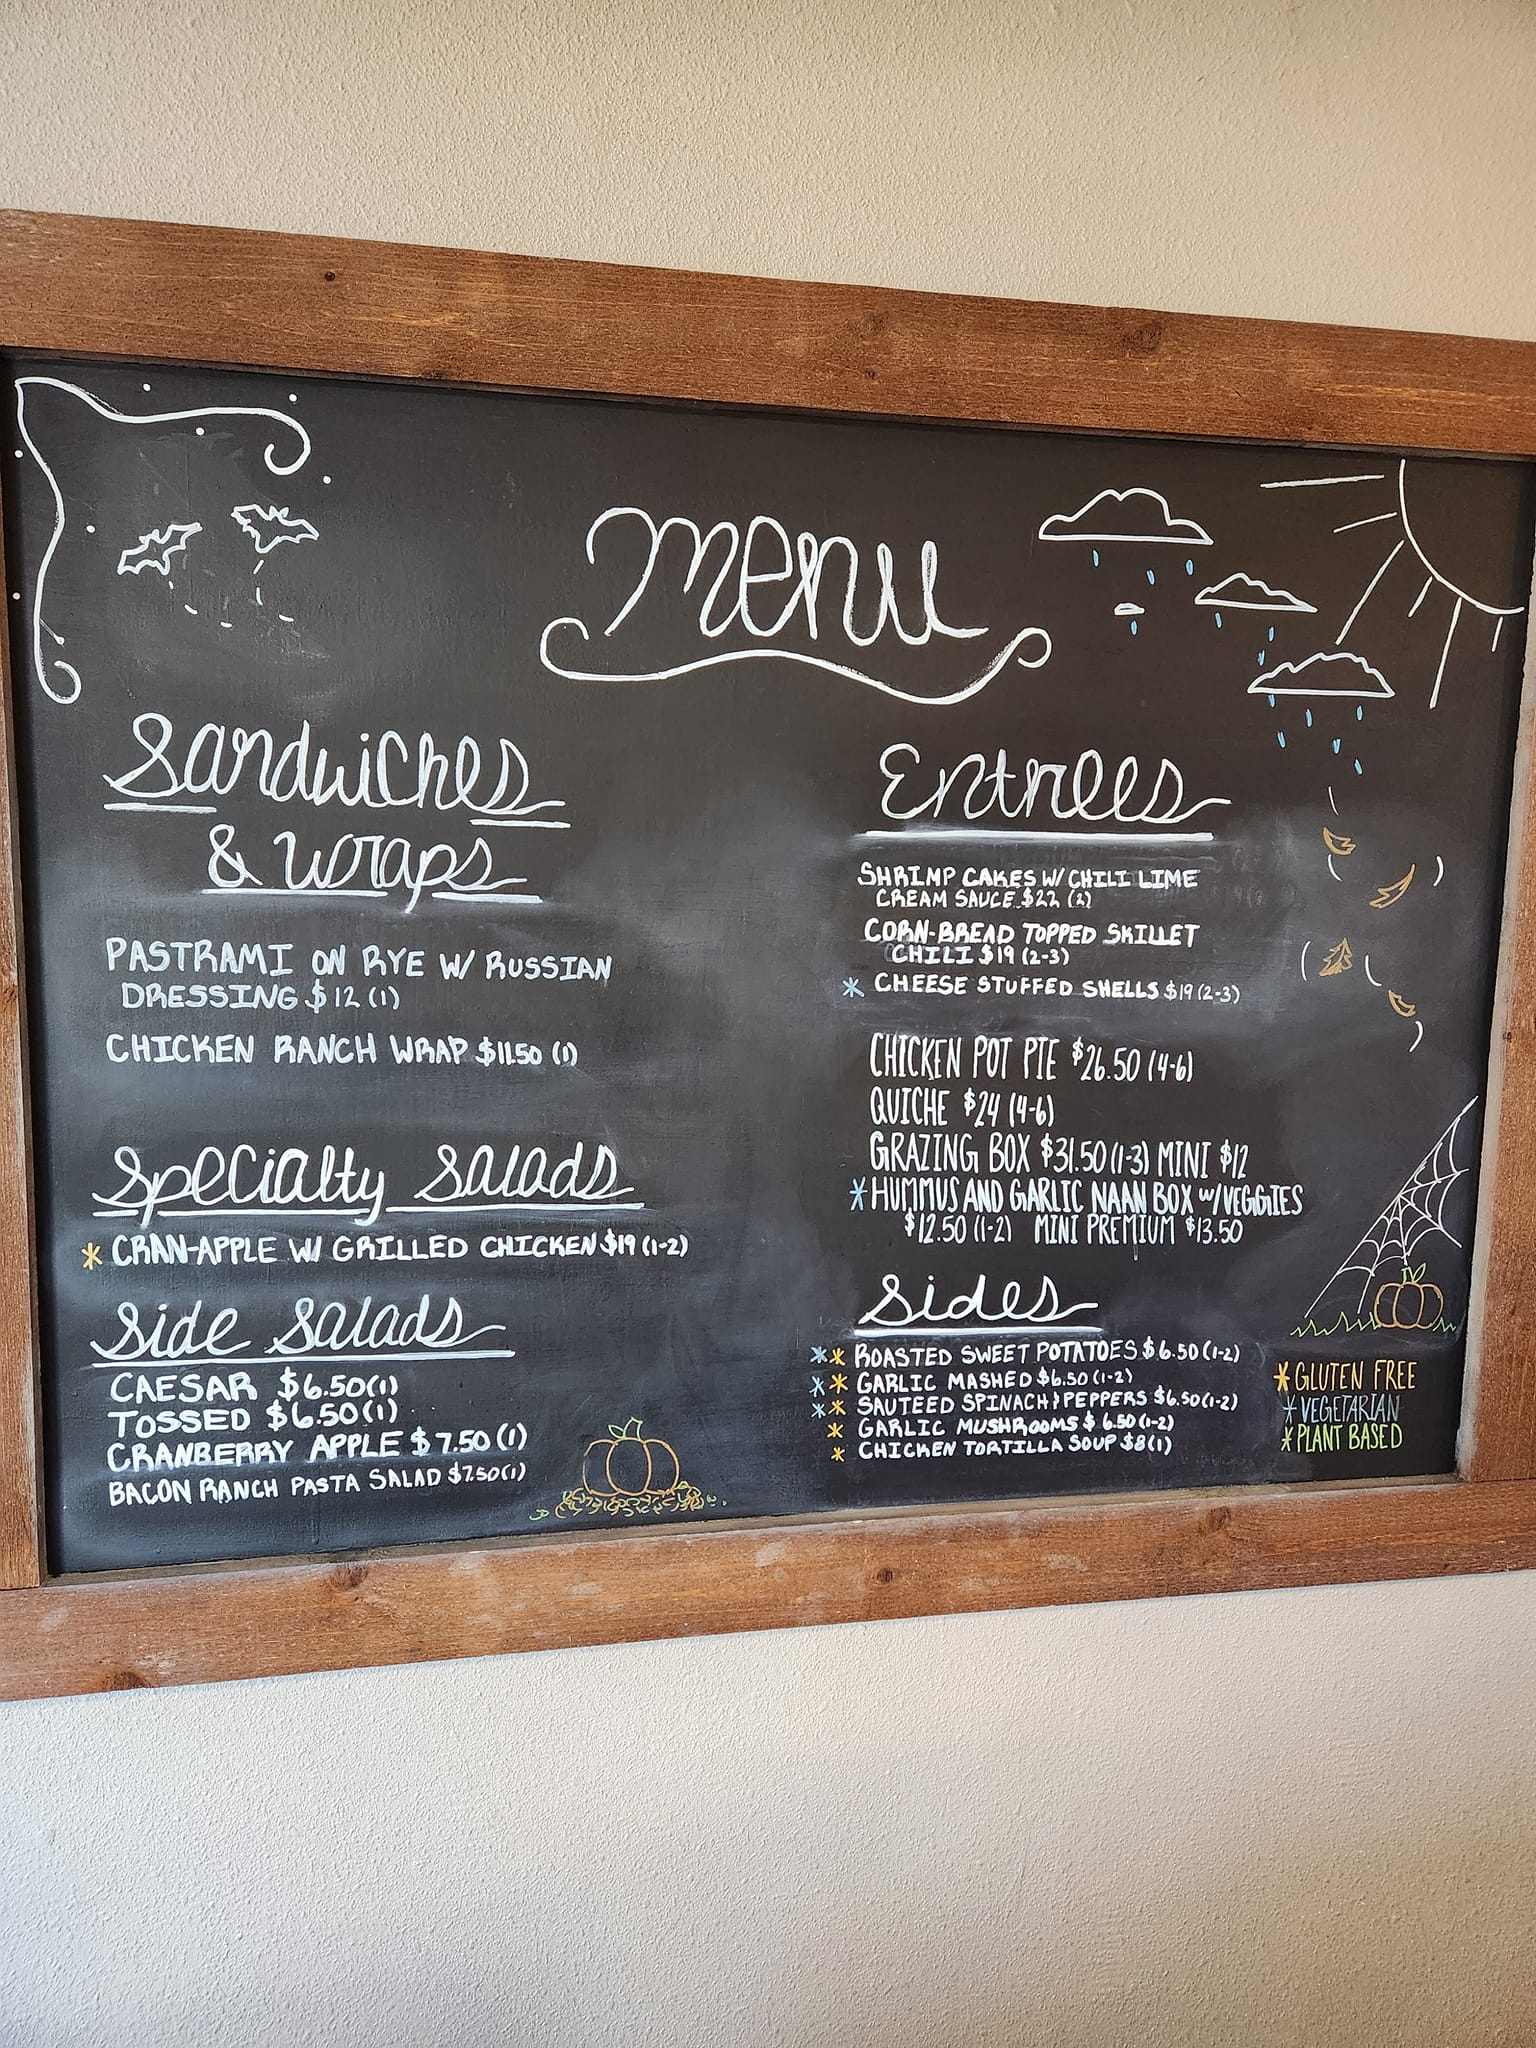 Menu
Sandwiches
& Wraps
PASTRAMI ON RYE W/ RUSSIAN
DRESSING $12 (1)
CHICKEN RANCH WRAP $11.50 (1)
Specialty Salads
* CRAN-APPLE W/ GRILLED CHICKEN $19 (1-2)
Side Salads
CAESAR $6.50 (1)
TOSSED $6.50 (1)
CRANBERRY APPLE $7.50 (1)
BACON RANCH PASTA SALAD $7.50 (1)
Entrees
SHRIMP CAKES W/ CHILI LIME
CREAM SAUCE $22 (2)
CORN-BREAD TOPPED SKILLET
CHILI $19 (2-3)
* CHEESE STUFFED SHELLS $19 (2-3)
CHICKEN POT PIE $26.50 (4-6)
QUICHE $24 (4-6)
GRAZING BOX $31.50 (1-3) MINI $12
* HUMMUS AND GARLIC NAAN BOX W/VEGGIES
$12.50 (1-2) MINI PREMIUM $13.50
Sides
** ROASTED SWEET POTATOES $6.50 (1-2)
** GARLIC MASHED $6.50 (1-2)
** SAUTEED SPINACH & PEPPERS $6.50 (1-2)
* GARLIC MUSHROOMS $6.50 (1-2)
* CHICKEN TORTILLA SOUP $8 (1)
* GLUTEN FREE
* VEGETARIAN
* PLANT BASED